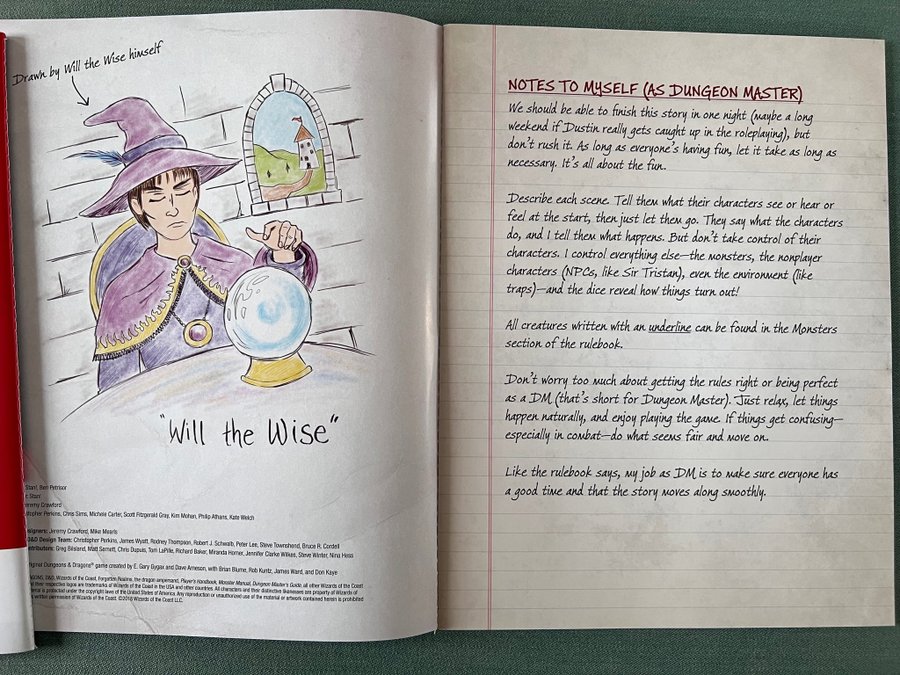 Drawn by Will the Wise himself
"Will the Wise"
Stan!, Ben Petrisor
Stan!
Jeremy Crawford
Christopher Perkins, Chris Sims, Michele Carter, Scott Fitzgerald Gray, Kim Mohan, Philip Athans, Kate Welch
Designers: Jeremy Crawford, Mike Mearls
D&D Design Team: Christopher Perkins, James Wyatt, Rodney Thompson, Robert J. Schwalb, Peter Lee, Steve Townshend, Bruce R. Cordell
Contributors: Greg Bilsland, Matt Sernett, Chris Dupuis, Tom LaPille, Richard Baker, Miranda Horner, Jennifer Clarke Wilkes, Steve Winter, Nina Hess
Original Dungeons & Dragons® game created by E. Gary Gygax and Dave Arneson, with Brian Blume, Rob Kuntz, James Ward, and Don Kaye
DRAGONS, D&D, Wizards of the Coast, Forgotten Realms, the dragon ampersand, Player's Handbook, Monster Manual, Dungeon Master's Guide, all other Wizards of the Coast
and their respective logos are trademarks of Wizards of the Coast in the USA and other countries. All characters and their distinctive likenesses are property of Wizards of
material is protected under the copyright laws of the United States of America. Any reproduction or unauthorized use of the material or artwork contained herein is prohibited
written permission of Wizards of the Coast. ©2018 Wizards of the Coast LLC.
NOTES TO MYSELF (AS DUNGEON MASTER)
We should be able to finish this story in one night (maybe a long
weekend if Dustin really gets caught up in the roleplaying), but
don't rush it. As long as everyone's having fun, let it take as long as
necessary. It's all about the fun.
Describe each scene. Tell them what their characters see or hear or
feel at the start, then just let them go. They say what the characters
do, and I tell them what happens. But don't take control of their
characters. I control everything else—the monsters, the nonplayer
characters (NPCs, like Sir Tristan), even the environment (like
traps)—and the dice reveal how things turn out!
All creatures written with an underline can be found in the Monsters
section of the rulebook.
Don't worry too much about getting the rules right or being perfect
as a DM (that's short for Dungeon Master). Just relax, let things
happen naturally, and enjoy playing the game. If things get confusing—
especially in combat—do what seems fair and move on.
Like the rulebook says, my job as DM is to make sure everyone has
a good time and that the story moves along smoothly.